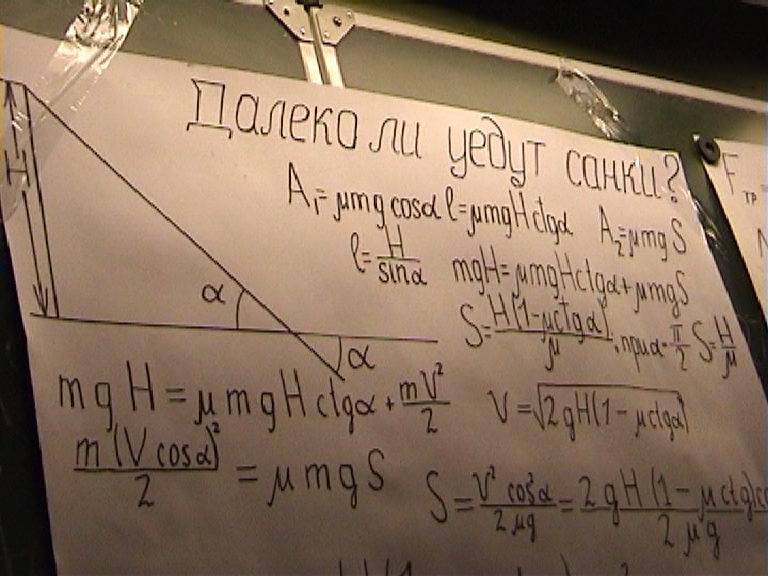 Далеко ли уедут санки?
A₁=μmg cosα l=μmgHctgα A₂=μmgS
l=H/sinα mgH=μmgHctgα+μmgS
S=H(1-μctgα)/μ, при α=π/2 S=H/μ
H
α
α
mgH=μmgHctgα+mV²/2 V=√2gH(1-μctgα)
m(Vcosα)²/2=μmgS S=V²cos²α/2μg=2gH(1-μctg)co/2μg
Fтр